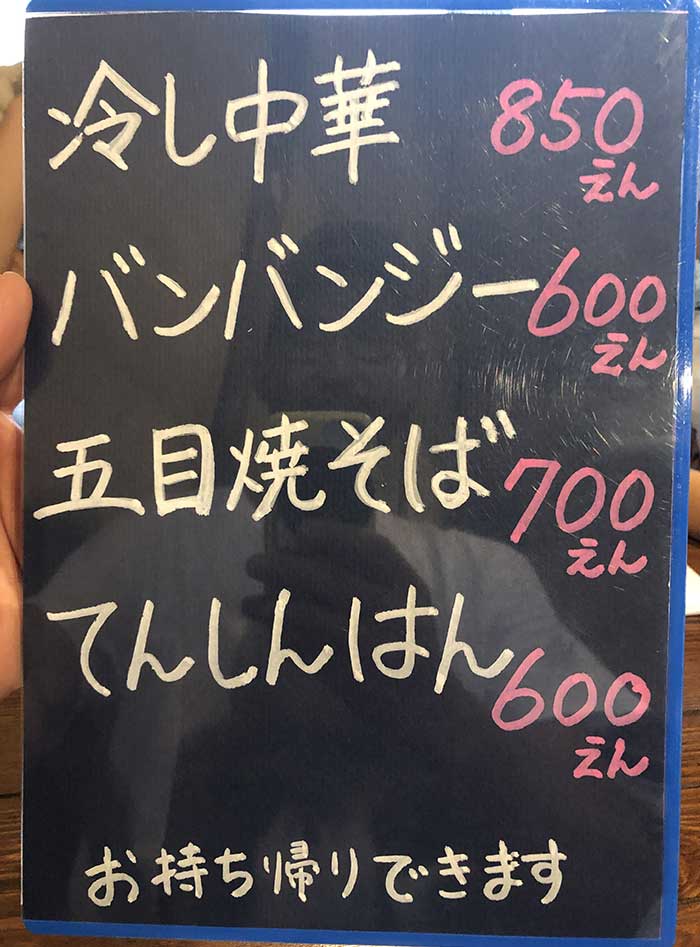 冷し中華 850えん
バンバンジー 600えん
五目焼そば 700えん
てんしんはん 600えん
お持ち帰りできます